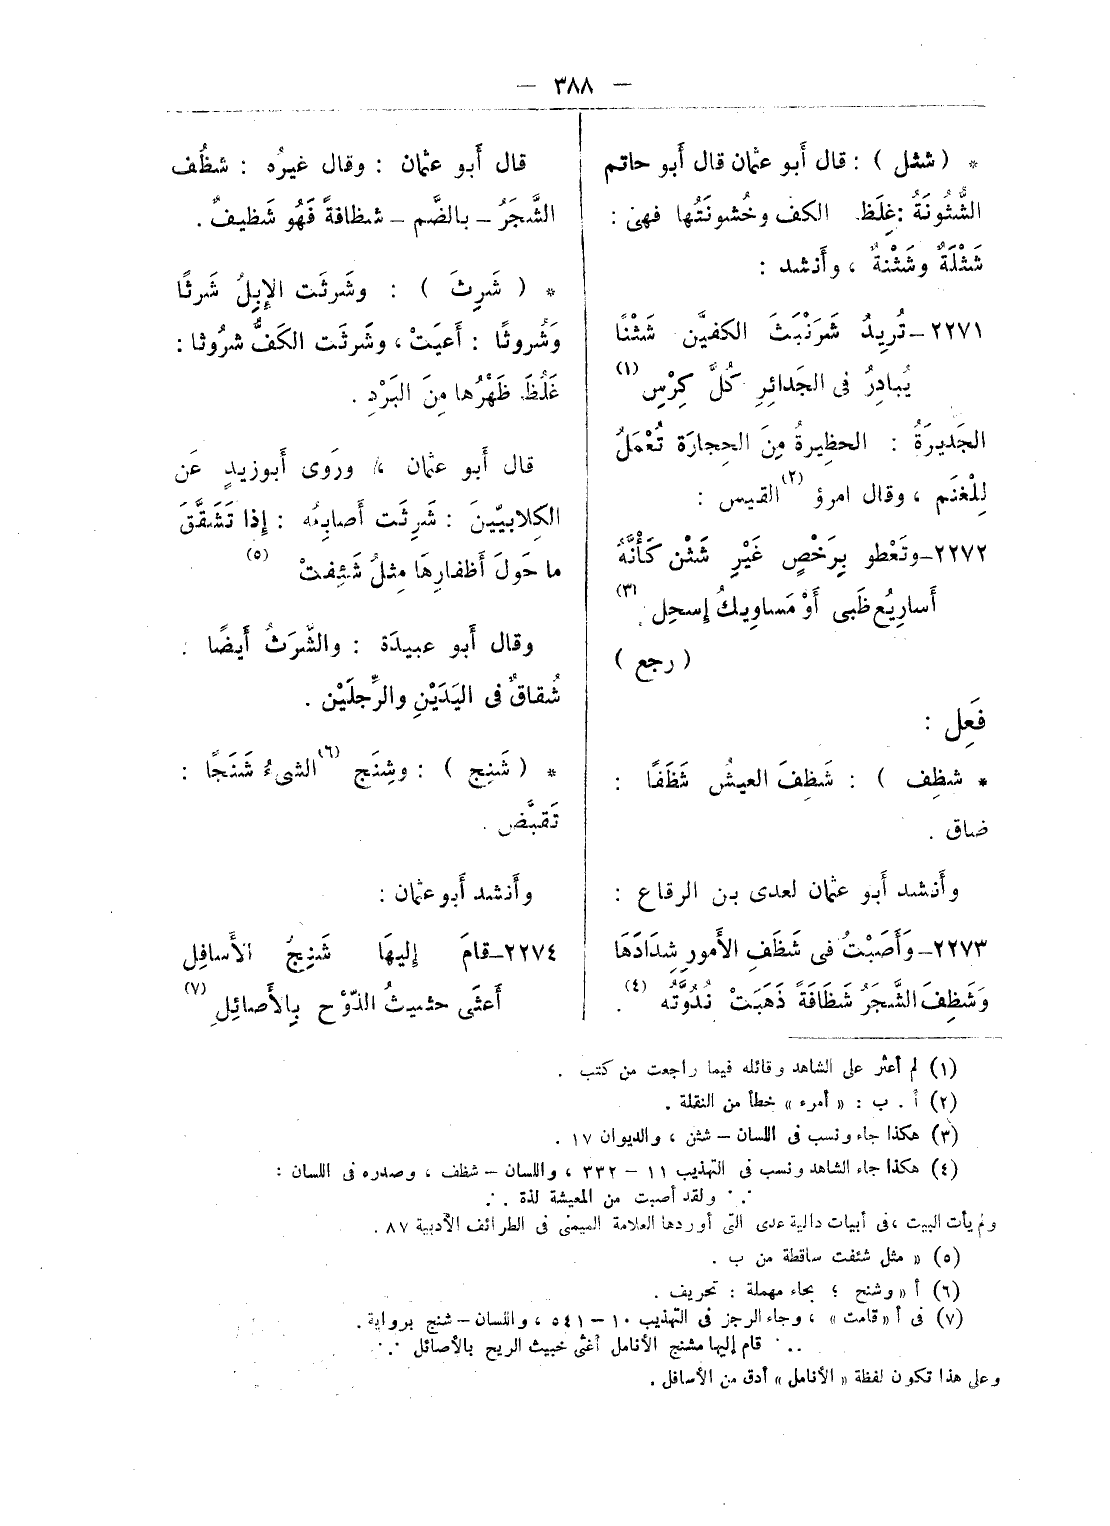 — ٣٨٨ —
* ( شثل ) : قال أَبو عثمان قال أَبو حاتم
الشُّثُونَةُ : غِلَظ الكف وخُشونَتُها فهى :
شَثْلَةٌ وشَثْنةٌ ، وأَنشد :
٢٢٧١ــ تُرِيدُ شَرَنْبَثَ الكفيَّن شَثْنًا
يُبادِرُ فى الجَدائِرِ كُلَّ كِرْسِ (١)
الجَدِيرَةُ : الحظِيرةُ مِنَ الحِجارَة تُعْمَلُ
لِلْغنَم ، وقال امرؤ (٢) القيس :
٢٢٧٢ــ وتَعْطو بِرَخْصٍ غَيْرِ شَثْن كَأَنَّهُ
أَسارِيُع ظَبى أَوْ مَساوِيكُ إسحِل (٣)
( رجع )
فَعِل :
* شظِف ) : شَظِفَ العيشُ شَظَفًا :
ضاق .
وأَنشد أَبو عثمان لعدى بن الرقاع :
٢٢٧٣ــ وَأَصَبْتُ فى شَظَفِ الأَمورِ شِدَادَهَا
وَشَظِفَ الشَّجَرُ شَظَافَةً ذَهَبَتْ نُدُوَّتُه (٤) .
قال أَبو عثمان : وقال غيرُه : شظُف
الشَّجَرُ ــ بالضَّم ــ شظافةً فَهُو شَظيفٌ .
* ( شَرِثَ ) : وشَرِثَت الإِبِلُ شَرثًا
وَشُروثًا : أَعيَتْ ، وشَرثَت الكَفُّ شرُوثا :
غَلُظَ ظَهْرُها مِنَ البَرْدِ .
قال أَبو عثمان ، ورَوى أَبوزيدٍ عَن
الكِلابيّينَ : شَرِثَت أَصابِعُه : إِذا تَشَقَّقَ
ما حَولَ أَظفارِهَا مِثلُ شَئِفتْ (٥)
وقال أَبو عبيدَة : والشَّرَثُ أَيضًا .
شُقاقٌ فى اليَدَيْنِ والرِّجلَيْن .
* ( شَنِج ) : وشِنَج (٦) الشىءُ شَنَجًا :
تَقبَّض .
وأَنشد أَبو عثمان :
٢٢٧٤ــ قامَ إِليهَا شَنِجُ الأَسافِل
أَعثَى حثيثُ الذّوْح بِالأَصائِلِ (٧)
(١) لم أعثر على الشاهد وقائله فيما راجعت من كتب .
(٢) أ . ب : « أمرء » خطأ من النقلة .
(٣) هكذا جاء ونسب فى اللسان – شثن ، والديوان ١٧ .
(٤) هكذا جاء الشاهد ونسب فى التهذيب ١١ – ٣٣٢ ، واللسان – شظف ، وصدره فى اللسان :
∴ ولقد أصبت من المعيشة لذة ∴
ولم يأت البيت ، فى أبيات دالية عدى التى أوردها العلامة الميمنى فى الطرائف الأدبية ٨٧ .
(٥) « مثل شئفت ساقطة من ب .
(٦) أ « وشنح ؛ بحاء مهملة : تحريف .
(٧) فى أ « قامت » ، وجاء الرجز فى التهذيب ١٠ – ٥٤١ ، واللسان – شنج برواية .
∴ قام إليها مشنج الأنامل أغثى خبيث الريح بالأصائل ∴
وعلى هذا تكون لفظة « الأنامل » أدق من الأسافل .